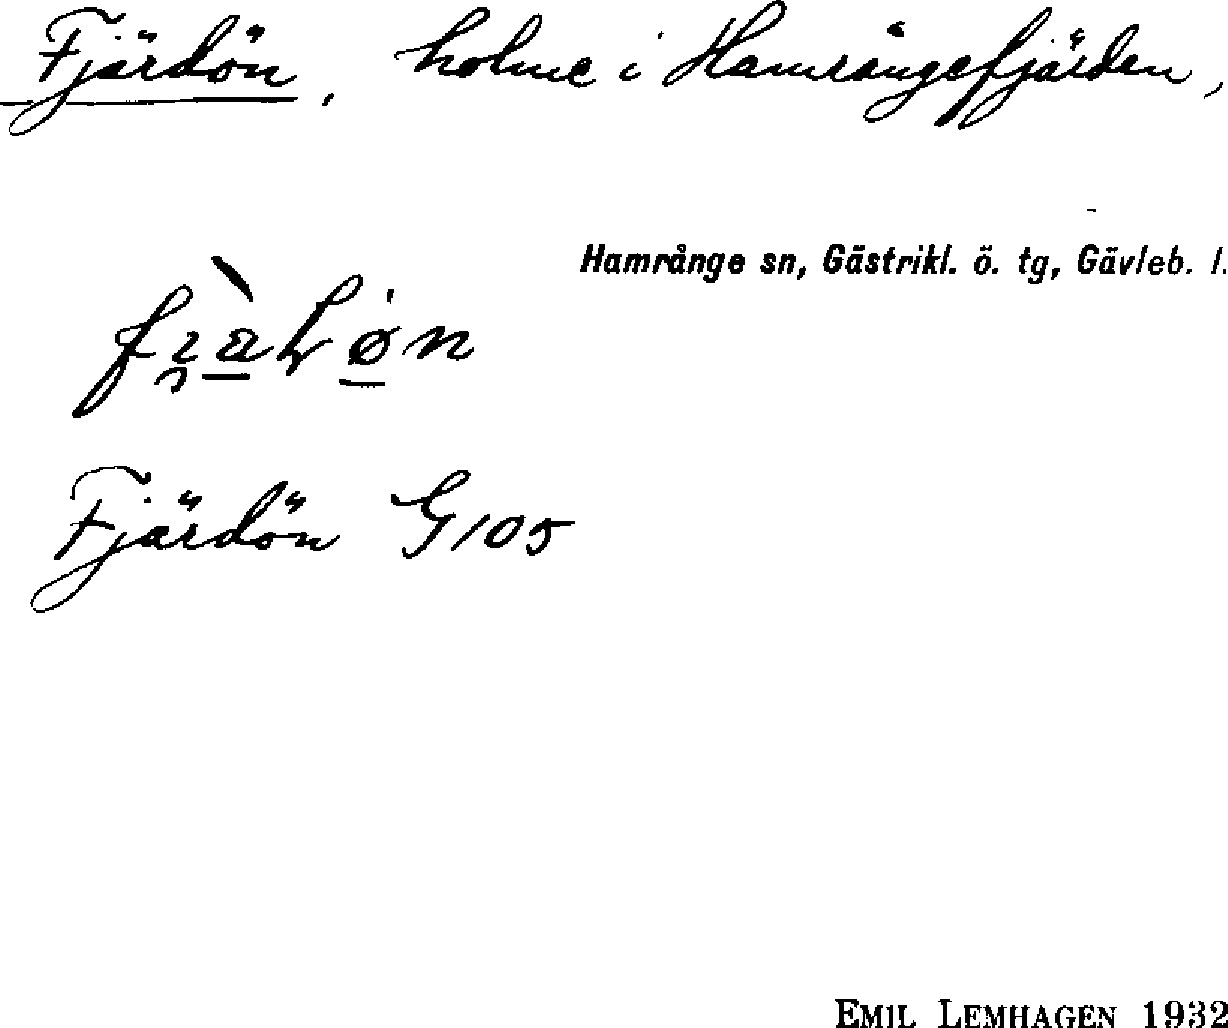 Fjärdön, holme i Hamrångefjärden,
Hamrånge sn, Gästrikl. ö. tg, Gävleb. l.
Fjärdön G105
EMIL LEMHAGEN 1932